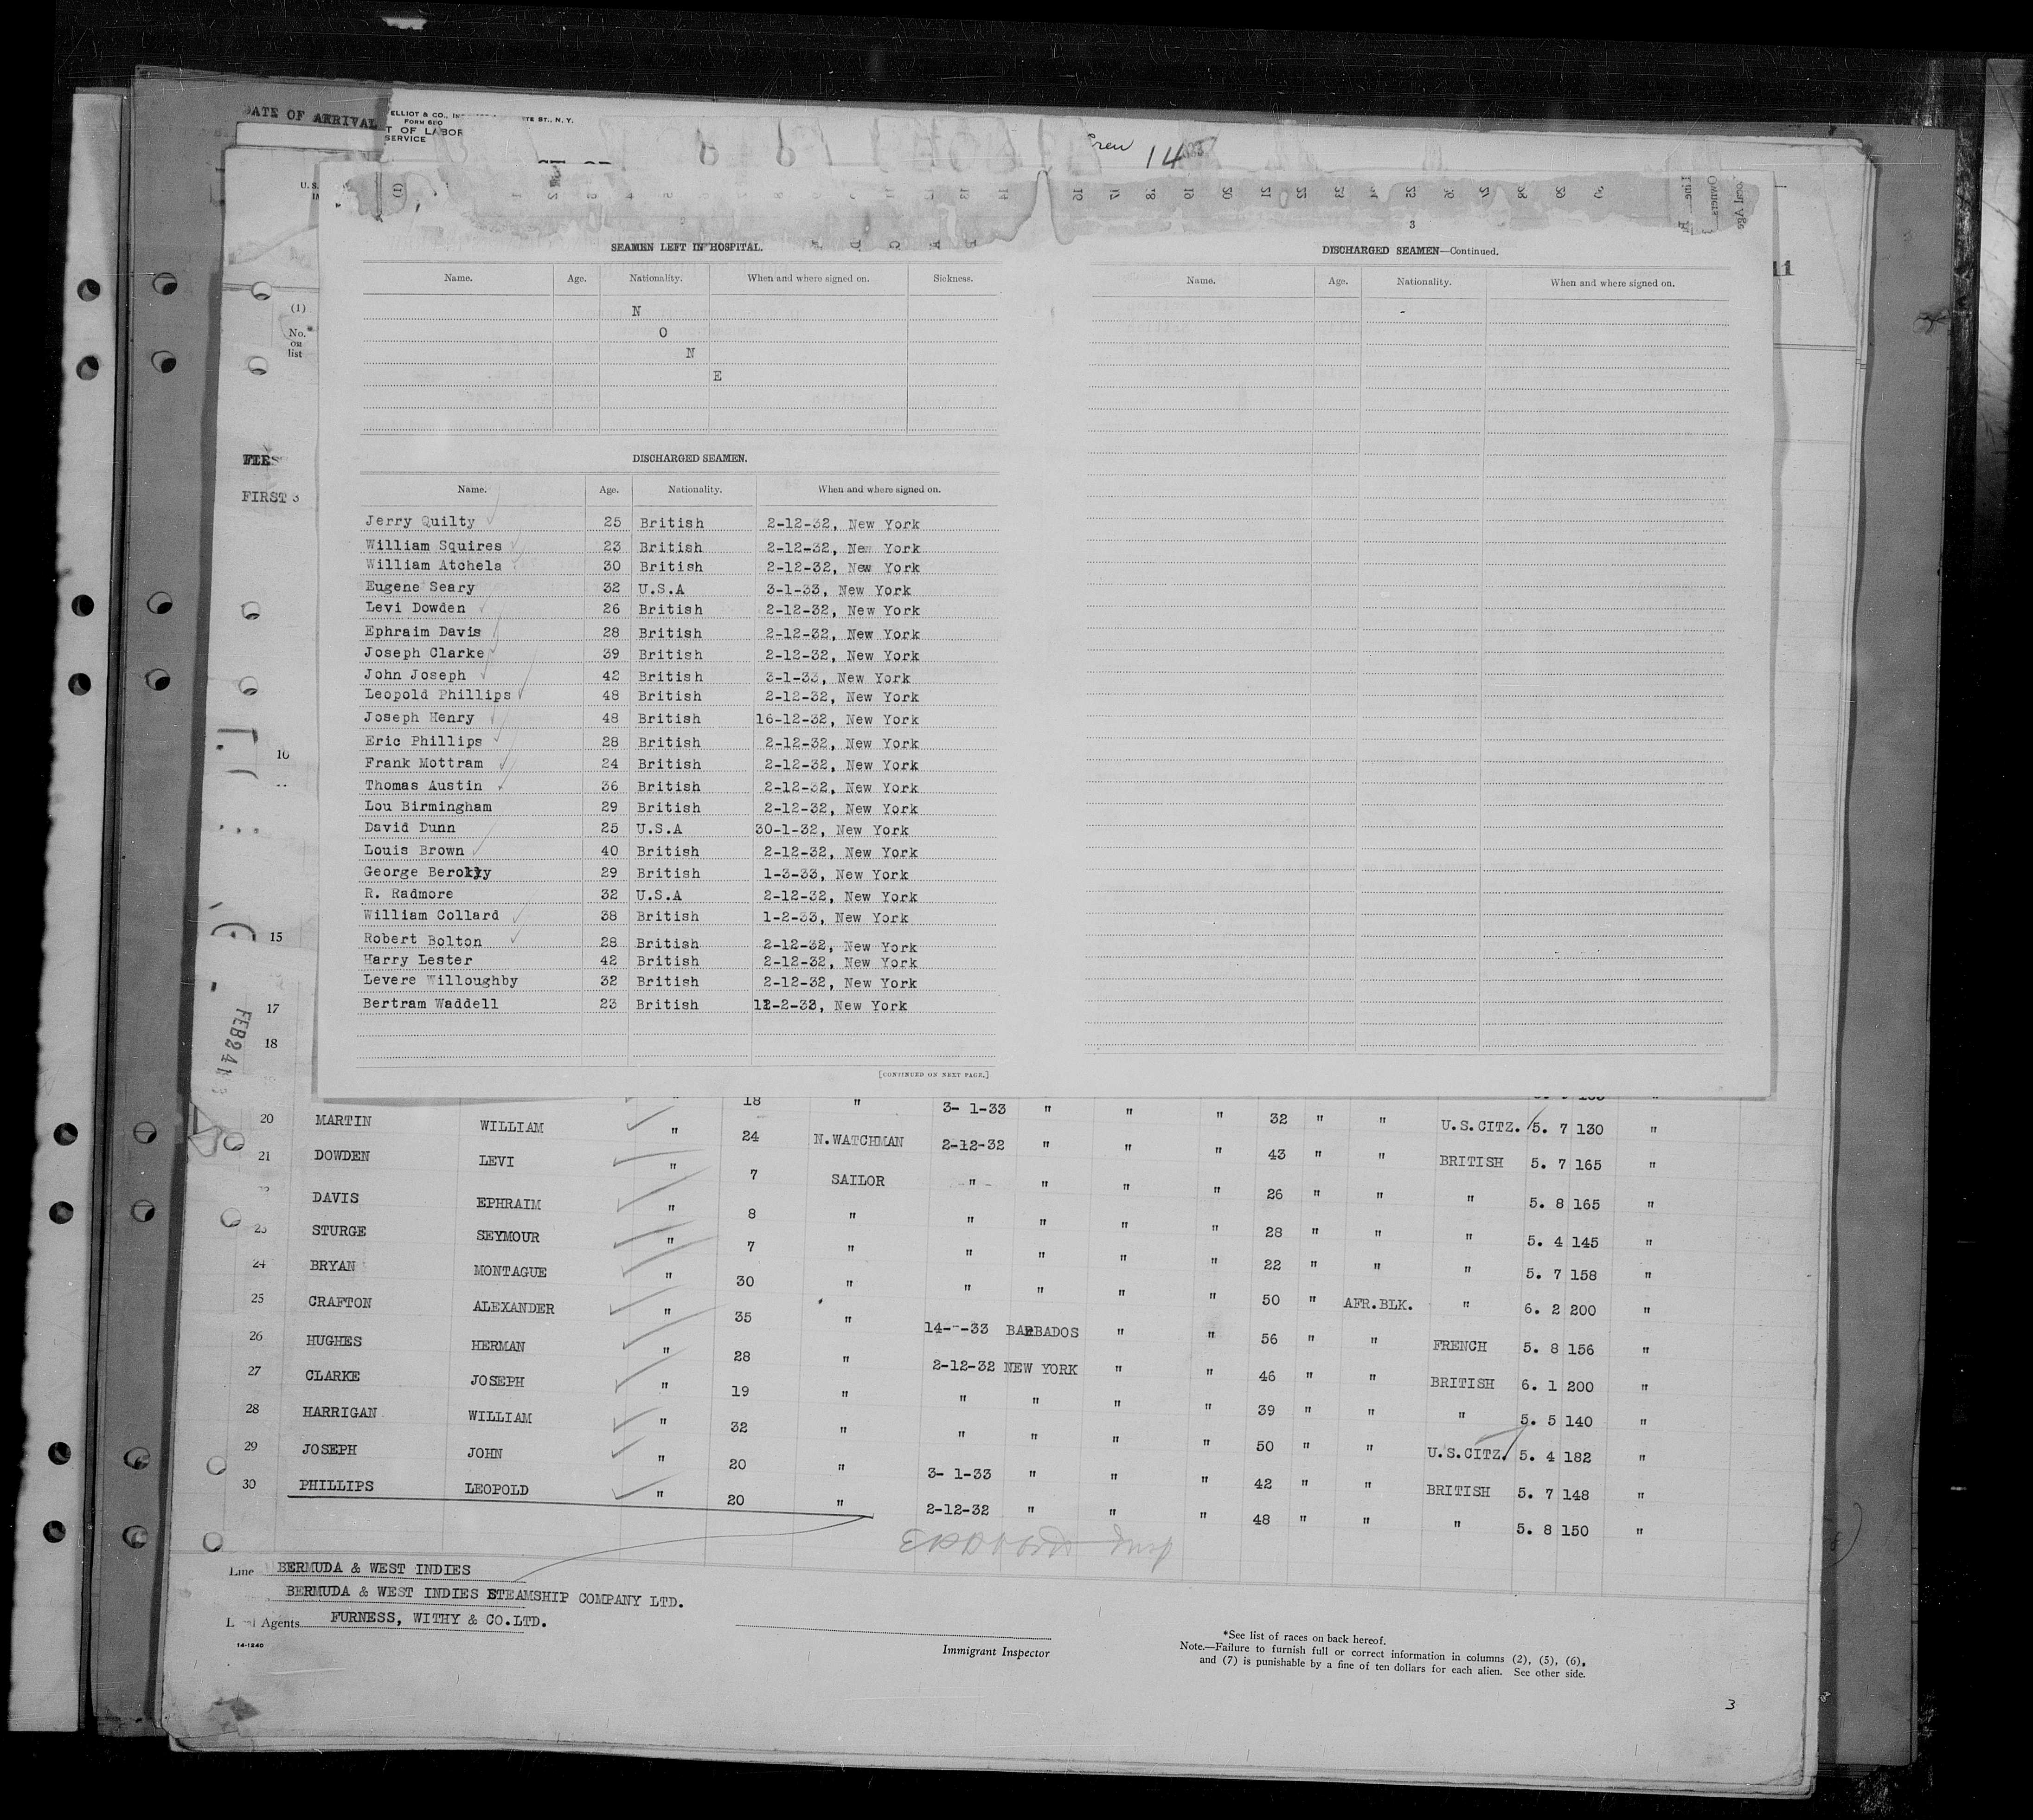 DATE OF ARRIVAL
ELLIOT & CO.,
ST., N. Y.
FORM 680
T OF LABOR
SERVICE
Crew 14
U. S.
(1)
3
SEAMEN LEFT IN HOSPITAL.
Name. Age. Nationality. When and where signed on. Sickness.
N
O
N
E
DISCHARGED SEAMEN.
Name. Age. Nationality. When and where signed on.
Jerry Quilty 25 British 2-12-32, New York
William Squires 23 British 2-12-32, New York
William Atchela 30 British 2-12-32, New York
Eugene Seary 32 U.S.A 3-1-33, New York
Levi Dowden 26 British 2-12-32, New York
Ephraim Davis 28 British 2-12-32, New York
Joseph Clarke 39 British 2-12-32, New York
John Joseph 42 British 3-1-33, New York
Leopold Phillips 48 British 2-12-32, New York
Joseph Henry 48 British 16-12-32, New York
Eric Phillips 28 British 2-12-32, New York
Frank Mottram 24 British 2-12-32, New York
Thomas Austin 36 British 2-12-32, New York
Lou Birmingham 29 British 2-12-32, New York
David Dunn 25 U.S.A 30-1-32, New York
Louis Brown 40 British 2-12-32, New York
George 29 British 1-3-33, New York
R. Radmore 32 U.S.A 2-12-32, New York
William Collard 38 British 1-2-33, New York
Robert Bolton 28 British 2-12-32, New York
Harry Lester 42 British 2-12-32, New York
Levere Willoughby 32 British 2-12-32, New York
Bertram Waddell 23 British 12-2-33, New York
[CONTINUED ON NEXT PAGE.]
DISCHARGED SEAMEN—Continued.
Name. Age. Nationality. When and where signed on.
11
(1)
No.
on
list
FIRST
10
15
17
18
FEB 24
18 " 3- 1-33 " " "
20 MARTIN WILLIAM " 24 N.WATCHMAN 2-12-32 " " " 32 " " U.S.CITZ. 5. 7 130 "
21 DOWDEN LEVI " 7 SAILOR " " " " 43 " " BRITISH 5. 7 165 "
DAVIS EPHRAIM " 8 " " " " " 26 " " " 5. 8 165 "
23 STURGE SEYMOUR " 7 " " " " " 28 " " " 5. 4 145 "
24 BRYAN MONTAGUE " 30 " " " " " 22 " " " 5. 7 158 "
25 CRAFTON ALEXANDER " 35 " 14- -33 BARBADOS " " 50 " AFR.BLK. " 6. 2 200 "
26 HUGHES HERMAN " 28 " 2-12-32 NEW YORK " " 56 " " FRENCH 5. 8 156 "
27 CLARKE JOSEPH " 19 " " " " " 46 " " BRITISH 6. 1 200 "
28 HARRIGAN WILLIAM " 32 " " " " " 39 " " " 5. 5 140 "
29 JOSEPH JOHN " 20 " 3- 1-33 " " " 50 " " U.S.CITZ. 5. 4 182 "
30 PHILLIPS LEOPOLD " 20 " 2-12-32 " " " 42 " " BRITISH 5. 7 148 "
48 " " " 5. 8 150 "
Line BERMUDA & WEST INDIES
BERMUDA & WEST INDIES STEAMSHIP COMPANY LTD.
Agents FURNESS, WITHY & CO.LTD.
14-1240
Immigrant Inspector
*See list of races on back hereof.
Note.—Failure to furnish full or correct information in columns (2), (5), (6),
and (7) is punishable by a fine of ten dollars for each alien. See other side.
3